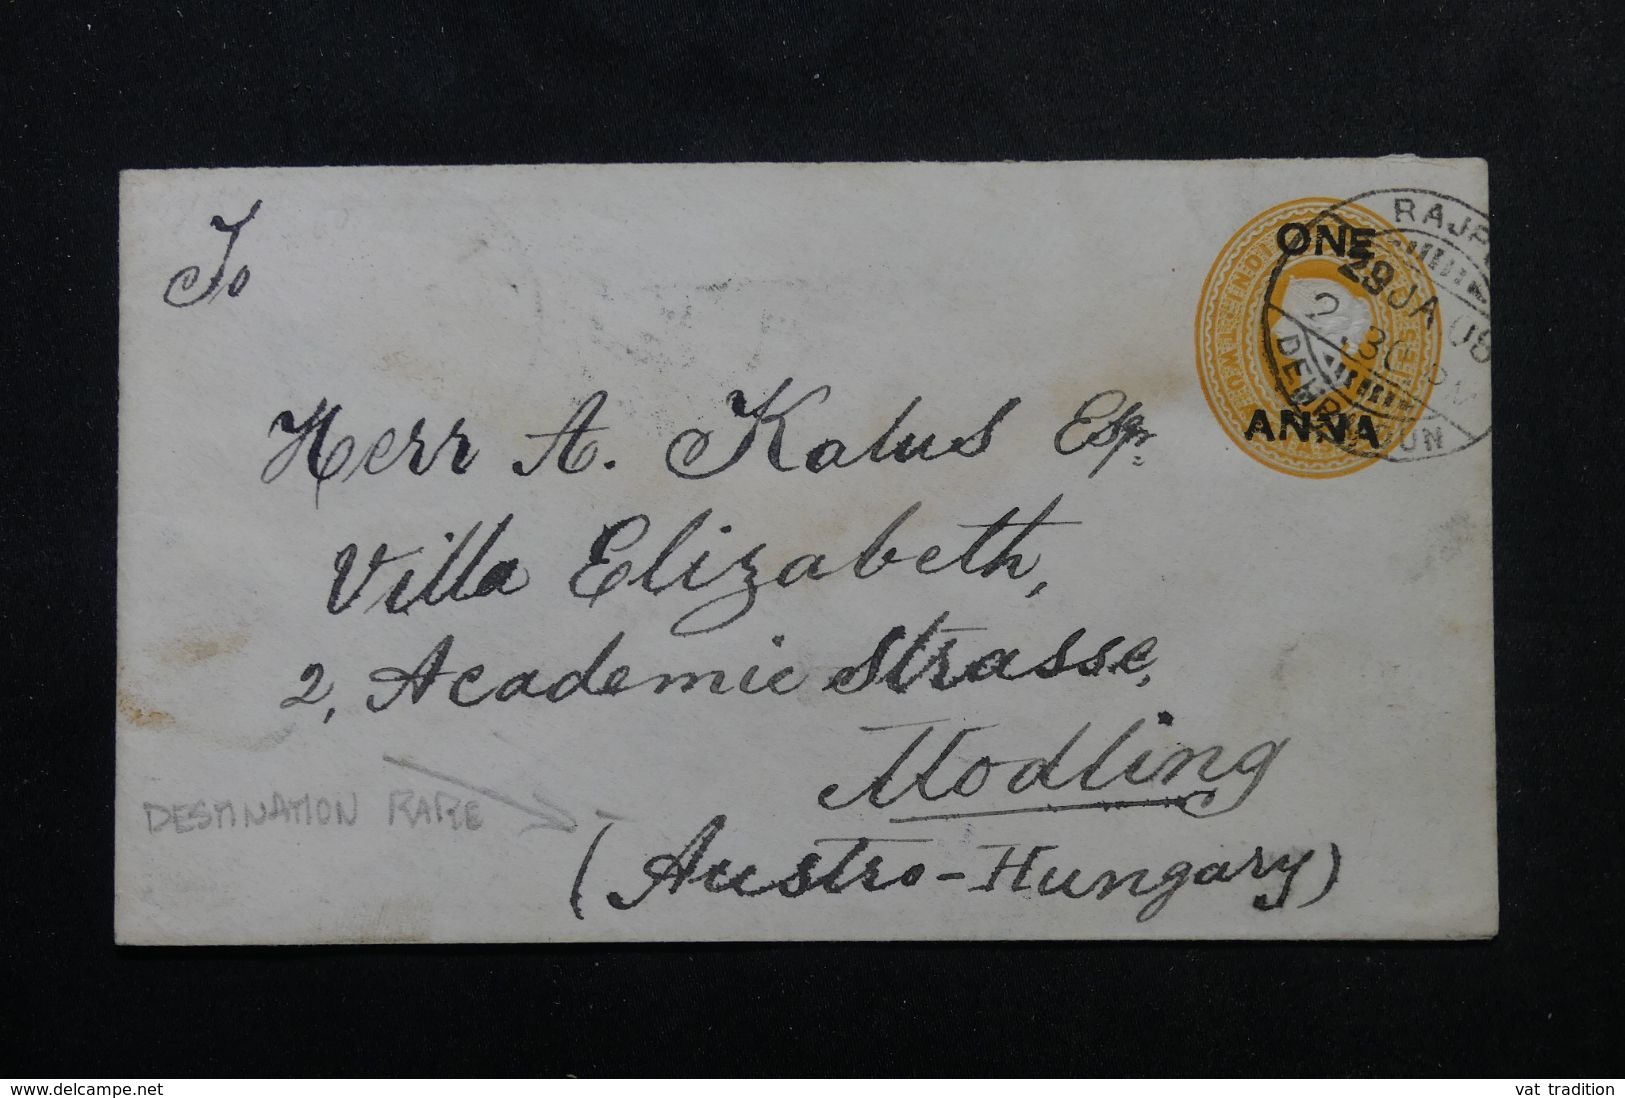 To
ONE
ANNA
29 JA 08
2.30 PM
Herr A. Kalus Esqr.
Villa Elizabeth,
2, Academie Strasse,
Modling
(Austro-Hungary)
DESTINATION RARE
delcampe.net
vat_tradition